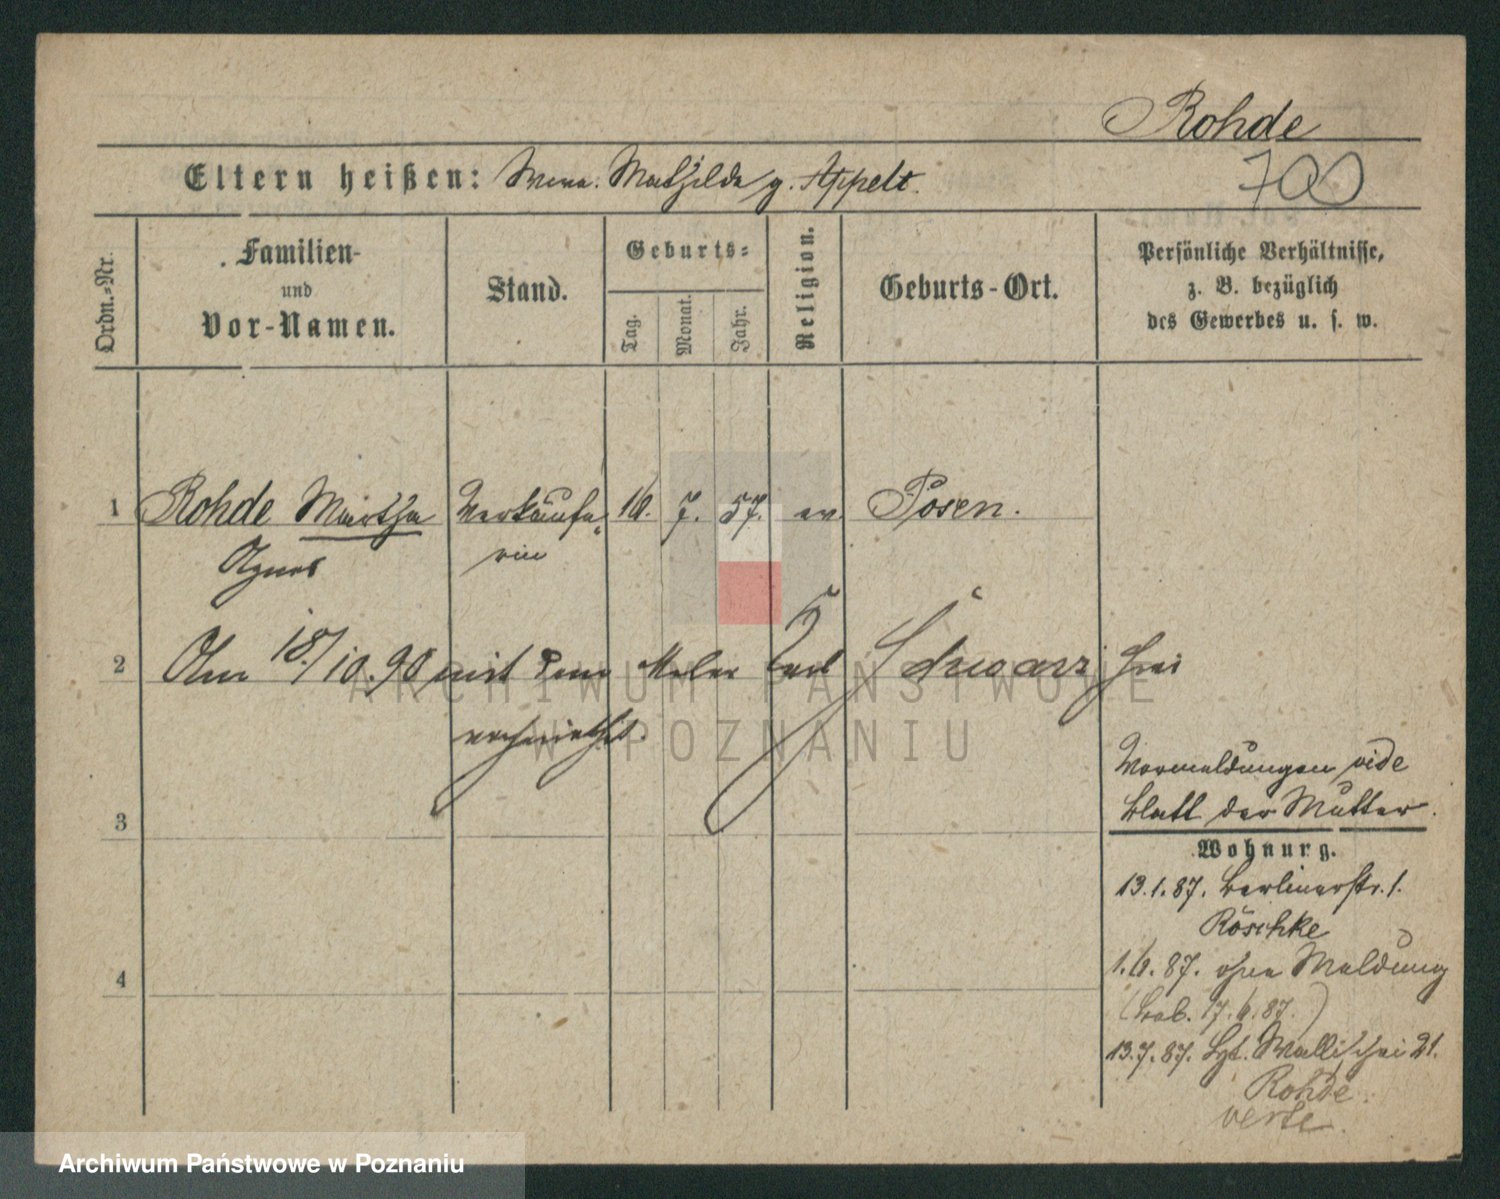 Rohde
Eltern heißen: Wwe. Mathilde g. Appelt.
700
Ordn.-Nr.
Familien-
und
Vor-Namen.
Stand.
Geburts-
Tag.
Monat.
Jahr.
Religion.
Geburts-Ort.
Persönliche Verhältnisse,
z. B. bezüglich
des Gewerbes u. s. w.
1 Rohde Martha Verkäufe- 16. 7. 57. ev Posen.
Agnes rin
2 Am 18./10.90 mit dem Maler Carl Schwarz
verheirathet.
3
4
Vormeldungen vide
Blatt der Mutter.
Wohnung.
13.1.87. Berlinerstr. 1.
Röschke
1.6.87. ohne Meldung
17.6.87.
13.7.87. Wallischei 21.
Rohde.
verte.
ARCHIWUM PAŃSTWOWE
W POZNANIU
Archiwum Państwowe w Poznaniu